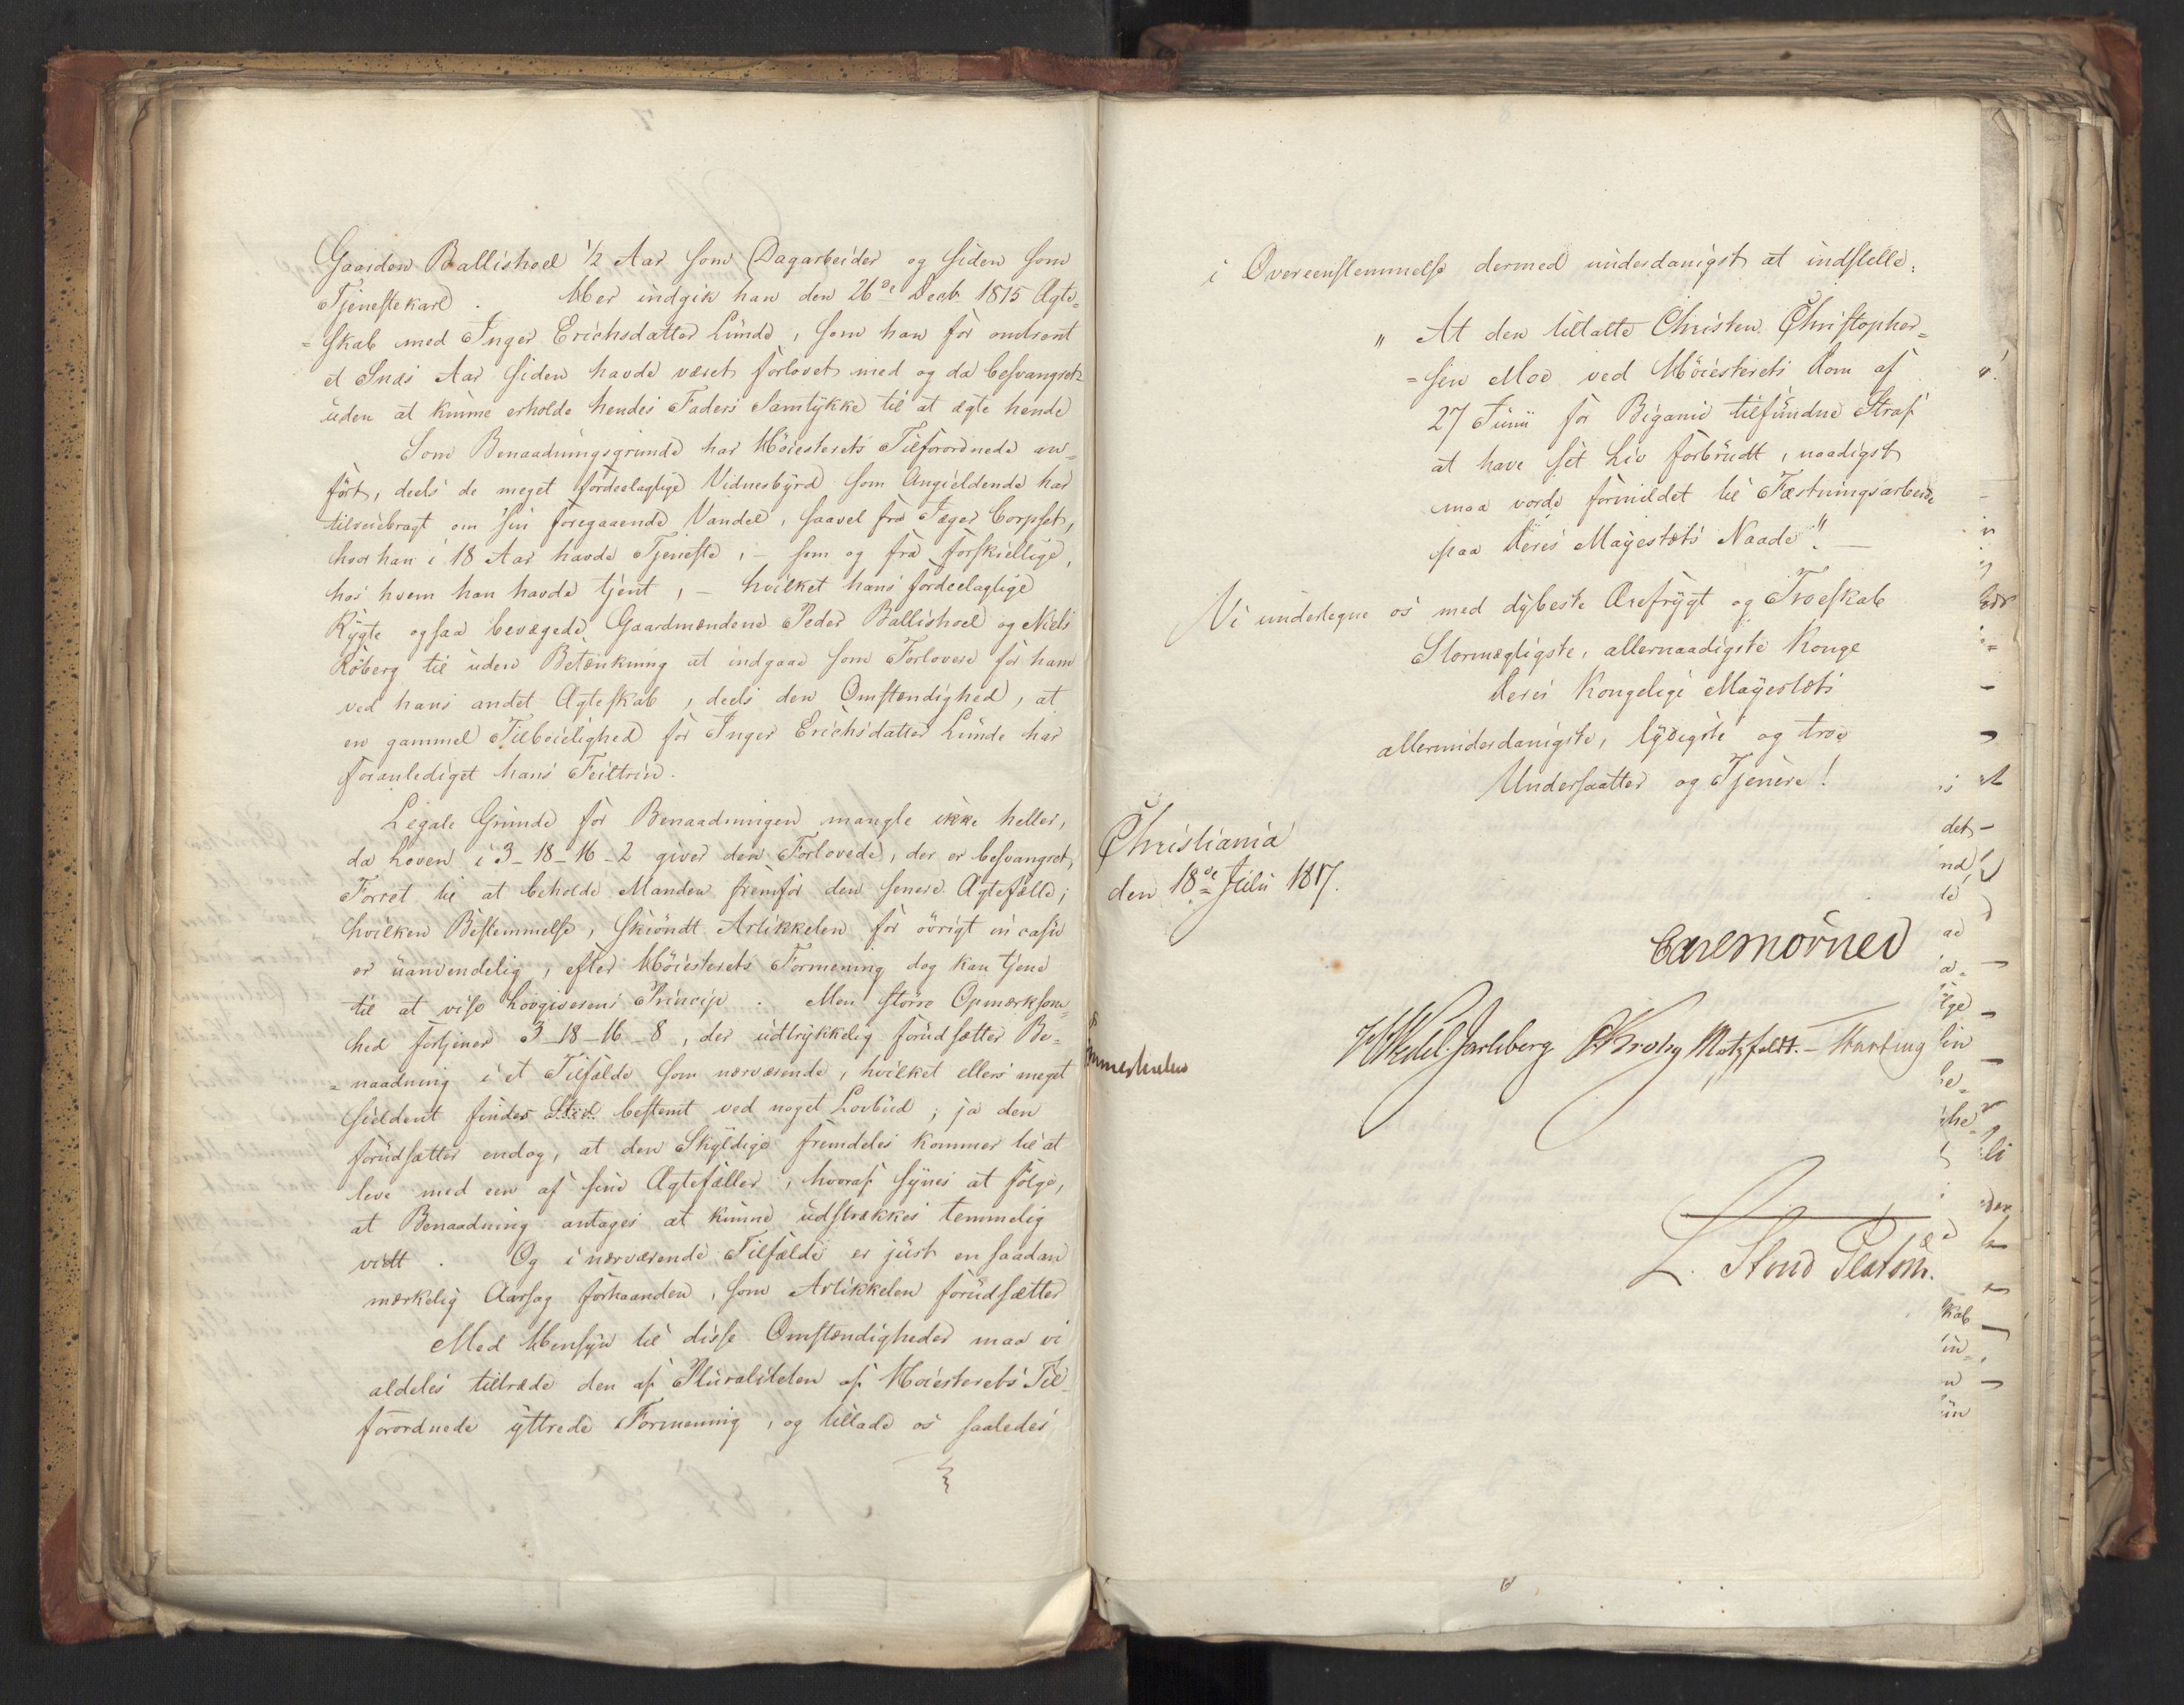 Gaarden Ballishoel 1/2 Aar som Dagarbeider og siden som
Tjenestekarl. Her indgik han den 26de Decb. 1815 Ægte=
=skab med Inger Erichsdatter Lunde, som han for omtrent
et Snes Aar siden havde været forlovet med og da besvangret
uden at kunne erholde hendes Faders Samtykke til at ægte hende
Som Benaadningsgrunde har Höiesterets Tilforordnede an=
fört, deels de meget fordeelagtige Vidnesbyrd som Angieldende har
tilveiebragt om sin foregaaende Vandel, saavel fra Jæger Corpset,
hvor han i 18 Aar havde Tjeneste, – som og fra forskiellige,
hos hvem han havde tjent, – hvilket hans fordeelagtige
Rygte ogsaa bevægede Gaardmændene Peder Ballishoel og Niels
Röberg til uden Betænkning at indgaae som Forlovere for ham
ved hans andet Ægteskab, deels den Omstændighed, at
en gammel Tilböielighed for Inger Erichsdatter Lunde har
foranlediget hans Feiltrin.
Legale Grunde for Benaadningen mangle ikke heller,
da Loven i 3-18-16-2 giver den Forlovede, der er besvangret,
Forret til at beholde Manden fremfor den senere Ægtefælle;
hvilken Bestemmelse, skiöndt Artikkelen for övrigt in casu
er uanvendelig, efter Höiesterets Formening dog kan tjene
til at vise Lovgiverens Princip. Men större Opmærksom=
hed fortjener 3-18-16-8, der udtrykkelig forudsætter Be=
=naadning i et Tilfælde som nærværende, hvilket ellers meget
sieldent findes Sted bestemt ved noget Lovbud; ja den
forudsætter endog, at den Skyldige fremdeles kommer til at
leve med een af sine Ægtefæller, hvoraf synes at fölge,
at Benaadning antages at kunne udstrækkes temmelig
vidt. Og i nærværende Tilfælde er just en saadan
mærkelig Aarsag forhaanden, som Artikkelen forudsætter
Med Hensyn til disse Omstændigheder maae vi
aldeles tiltræde den af Pluraliteten af Höiesterets Til=
forordnede yttrede Formening, og tillade os saaledes
i Overeenstemmelse dermed underdanigst at indstille:
" At den tiltalte Christen Christopher=
=sen Moe ved Höiesterets Dom af
27 Junii for Bigamie tilfundne Straf
at have sit Liv forbrudt, naadigst
maa vorde formildet til Fæstningsarbeide
paa Deres Majestæts Naade". –
Vi undertegne os med dybeste Ærefrygt og Troeskab
Stormægtigste, allernaadigste Konge
Deres Kongelige Majestæts
allerunderdanigste, lydigste og troe
Undersaatter og Tjenere!
Christiania
den 18de Julii 1817.
Carl Mörner
HWedel-Jarlsberg Krohg Motzfeldt.
L. Stoud Platou.